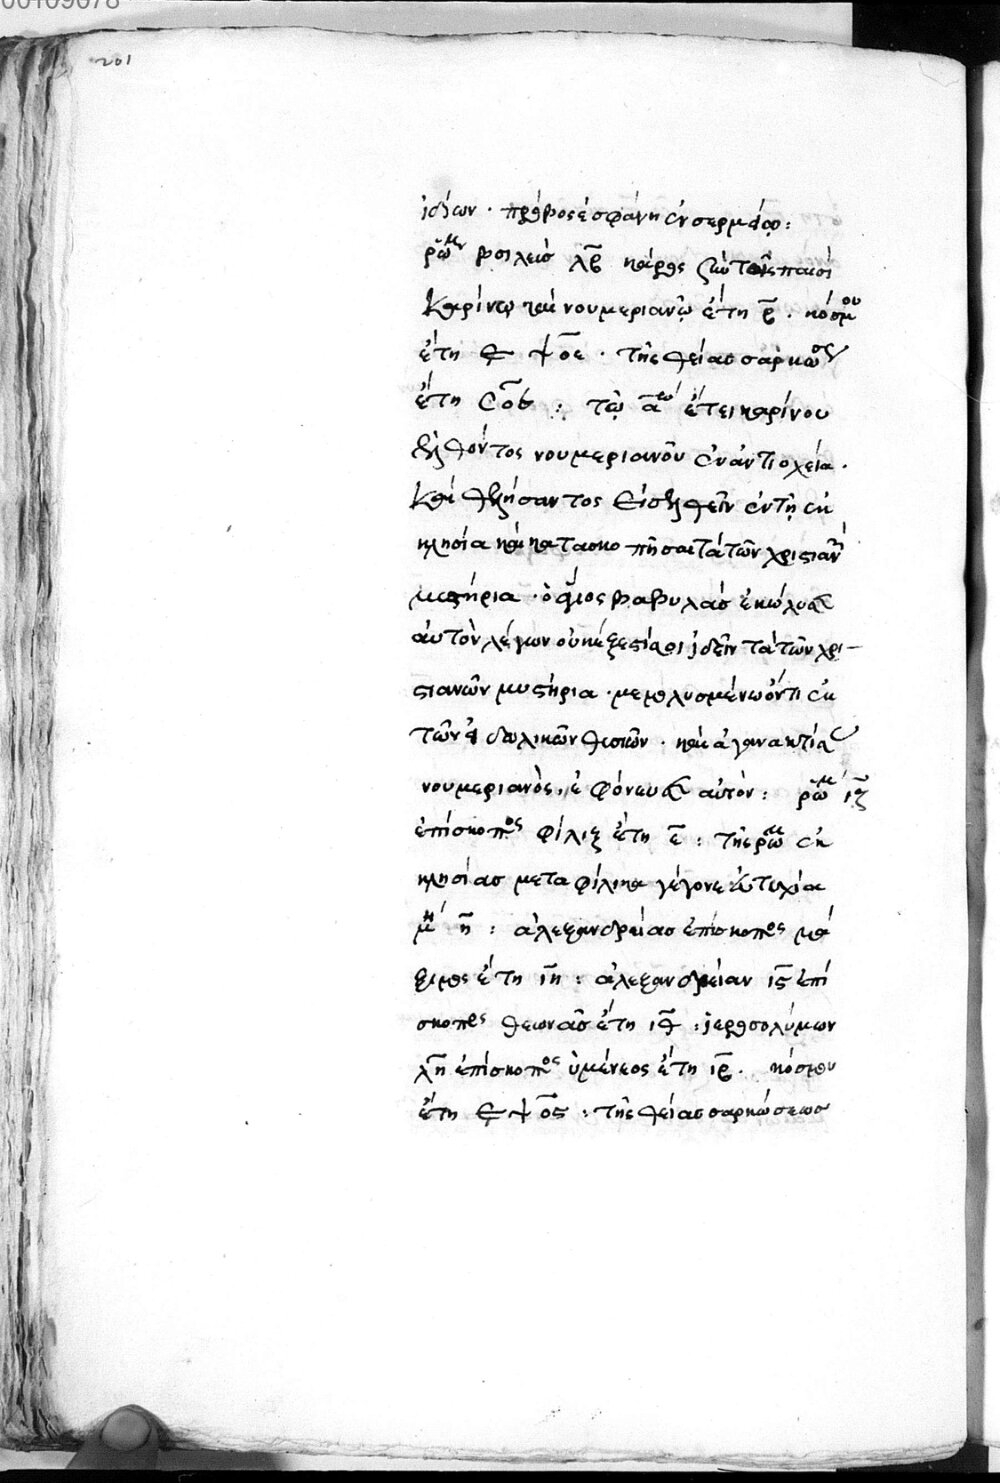 00109078
201
ἰδίων · πρόβος ἐσφάγη ἐν σερμίῳ :
ῥωμ βασιλεὺς λβ κάρος σὺν τοῖς παισὶ
καρίνῳ καὶ νουμεριανῷ ἔτη β · κόσμου
ἔτη ε ψοε · τῆς θείας σαρκώσεως
ἔτη σοε : τῷ αῳ ἔτει καρίνου
ἐλθόντος νουμεριανοῦ ἐν ἀντιοχεία ·
καὶ θελήσαντος εἰσελθεῖν ἐν τῇ ἐκ
κλησία καὶ κατασκοπῆσαι τὰ τῶν χριστιανῶν
μυστήρια · ὁ ἅγιος βαβυλὰς ἐκώλυσεν
αὐτὸν λέγων οὐκ ἔξεστί σοι ἰδεῖν τὰ τῶν χρι-
στιανῶν μυστήρια · μεμολυσμένω ὄντι ἐκ
τῶν εἰδωλικῶν θυσιῶν · καὶ ἀγανακτήσας
νουμεριανὸς, ἐφόνευσεν αὐτόν : ῥωμ κζ
ἐπίσκοπος φίλιξ ἔτη ε : τῆς ῥωμ ἐκ
κλησίας μετα φίλικα γέγονε εὐτυχία
μη η : ἀλεξανδρείας ἐπίσκοπος μά
ξιμος ἔτη ιη : ἀλεξανδρείαν ις ἐπί
σκοπος θεωνᾶς ἔτη ιθ : ἱεροσολύμων
λη ἐπίσκοπος ὑμέναιος ἔτη ιβ · κόσμου
ἔτη ε ψος : τῆς θείας σαρκώσεως